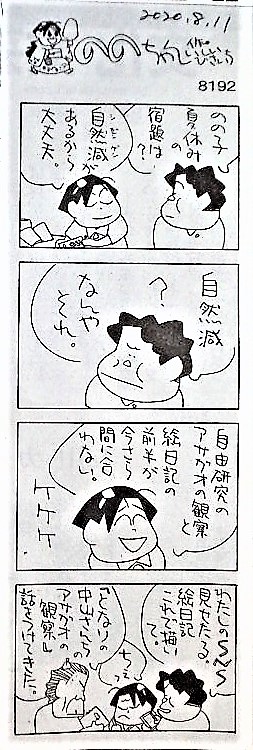 2020.8.11
ののちゃん
作・いしいひさいち
8192
のの子
夏休み
の
宿題は
?
自然減が
シゼンゲン
あるから
大丈夫。
自然減
?
なんや
それ。
自由研究の
アサガオの観察と
絵日記の
前半が
今さら
間に合
わない。
ケケケ
わたしのSNS
見せたる。
絵日記
これで描い
て。
ちっ
「となりの
中山さんちの
アサガオの
観察」
話つけてきた。